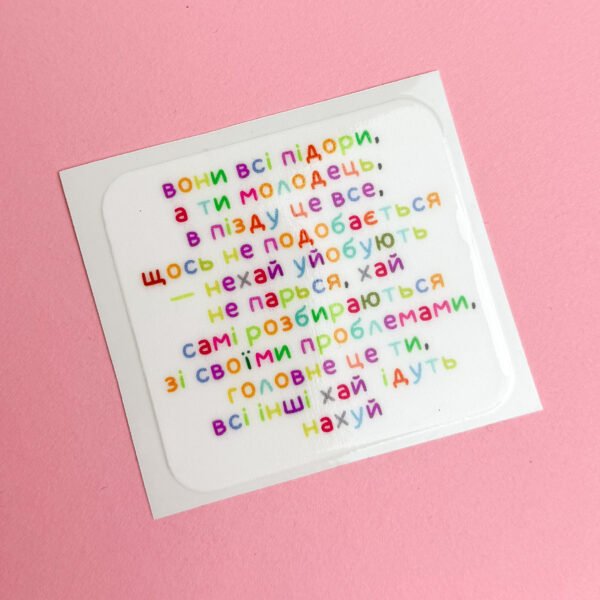 вони всі підори,
а ти молодець,
в пізду це все,
щось не подобається
— нехай уйобують
не парься, хай
самі розбираються
зі своїми проблемами,
головне це ти,
всі інші хай ідуть
нахуй